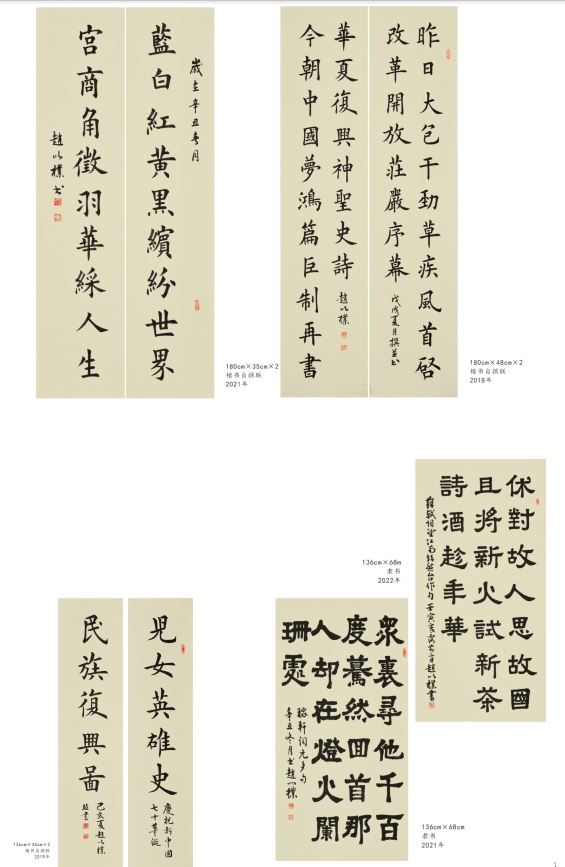 歲在辛丑春月
藍白紅黄黑繽紛世界
宮商角徵羽華綵人生
趙以樸书
180cm×35cm×2
楷书自撰联
2021年
昨日大包干勁草疾風首啓
改革開放莊嚴序幕
戊戌夏月撰並书
今朝中國夢鴻篇巨制再書
華夏復興神聖史詩
趙以樸
180cm×48cm×2
楷书自撰联
2018年
休對故人思故國
且將新火試新茶
詩酒趁年華
蘇軾詞望江南超然台作句 壬寅 趙以樸書
136cm×68m
隶书
2022年
兒女英雄史
慶祝新中國
七十華誕
民族復興啚
己亥夏趙以樸
書
136cm×34cm×2
楷书自撰联
2019年
衆裏尋他千百
度驀然回首那
人却在燈火闌
珊處
稼軒词元夕句
辛丑冬月书趙以樸
136cm×68cm
隶书
2021年